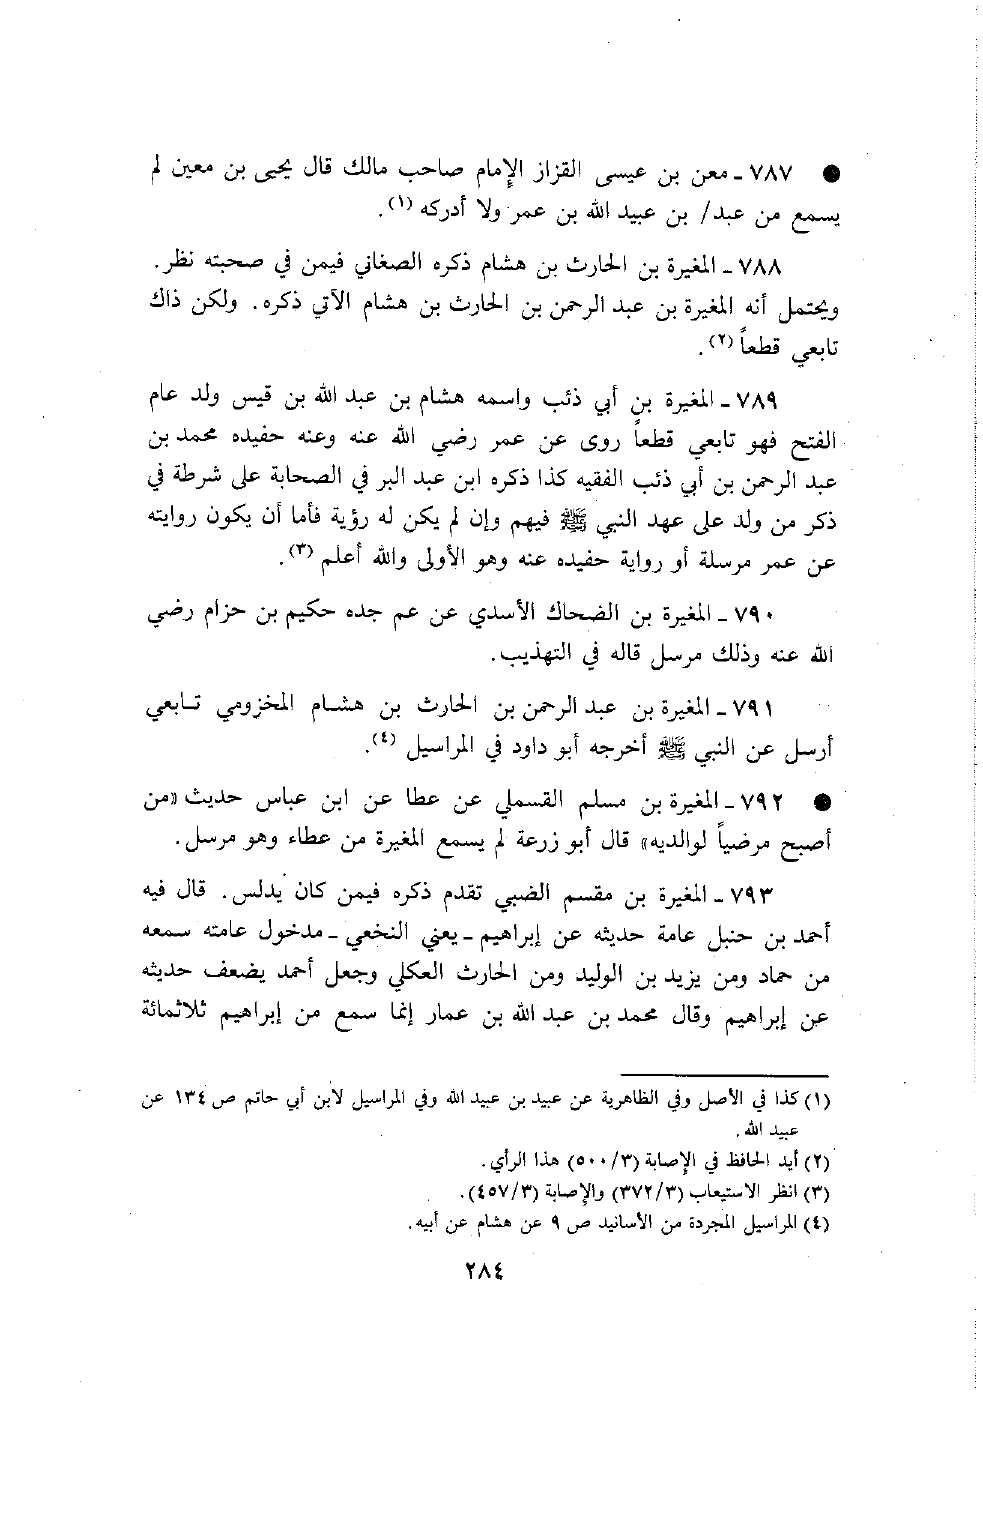 ● ٧٨٧ ـ معن بن عيسى القزاز الإمام صاحب مالك قال يحيى بن معين لم
يسمع من عبد/ بن عبيد الله بن عمر ولا أدركه (١).
٧٨٨ ـ المغيرة بن الحارث بن هشام ذكره الصغاني فيمن في صحبته نظر.
ويحتمل أنه المغيرة بن عبد الرحمن بن الحارث بن هشام الآتي ذكره. ولكن ذاك
تابعي قطعاً (٢).
٧٨٩ ـ المغيرة بن أبي ذئب واسمه هشام بن عبد الله بن قيس ولد عام
الفتح فهو تابعي قطعاً روى عن عمر رضي الله عنه وعنه حفيده محمد بن
عبد الرحمن بن أبي ذئب الفقيه كذا ذكره ابن عبد البر في الصحابة على شرطة في
ذكر من ولد على عهد النبي ﷺ فيهم وإن لم يكن له رؤية فأما أن يكون روايته
عن عمر مرسلة أو رواية حفيده عنه وهو الأولى والله أعلم (٣).
٧٩٠ ـ المغيرة بن الضحاك الأسدي عن عم جده حكيم بن حزام رضي
الله عنه وذلك مرسل قاله في التهذيب.
٧٩١ ـ المغيرة بن عبد الرحمن بن الحارث بن هشام المخزومي تابعي
أرسل عن النبي ﷺ أخرجه أبو داود في المراسيل (٤).
● ٧٩٢ ـ المغيرة بن مسلم القسملي عن عطا عن ابن عباس حديث «من
أصبح مرضياً لوالديه» قال أبو زرعة لم يسمع المغيرة من عطاء وهو مرسل.
٧٩٣ ـ المغيرة بن مقسم الضبي تقدم ذكره فيمن كان يدلس. قال فيه
أحمد بن حنبل عامة حديثه عن إبراهيم ـ يعني النخعي ـ مدخول عامته سمعه
من حماد ومن يزيد بن الوليد ومن الحارث العكلي وجعل أحمد يضعف حديثه
عن إبراهيم وقال محمد بن عبد الله بن عمار إنما سمع من إبراهيم ثلاثمائة
(١) كذا في الأصل وفي الظاهرية عن عبيد بن عبيد الله وفي المراسيل لابن أبي حاتم ص ١٣٤ عن
عبيد الله.
(٢) أيد الحافظ في الإصابة (٥٠٠/٣) هذا الرأي.
(٣) انظر الاستيعاب (٣٧٢/٣) والإصابة (٤٥٧/٣).
(٤) المراسيل المجردة من الأسانيد ص ٩ عن هشام عن أبيه.
٢٨٤